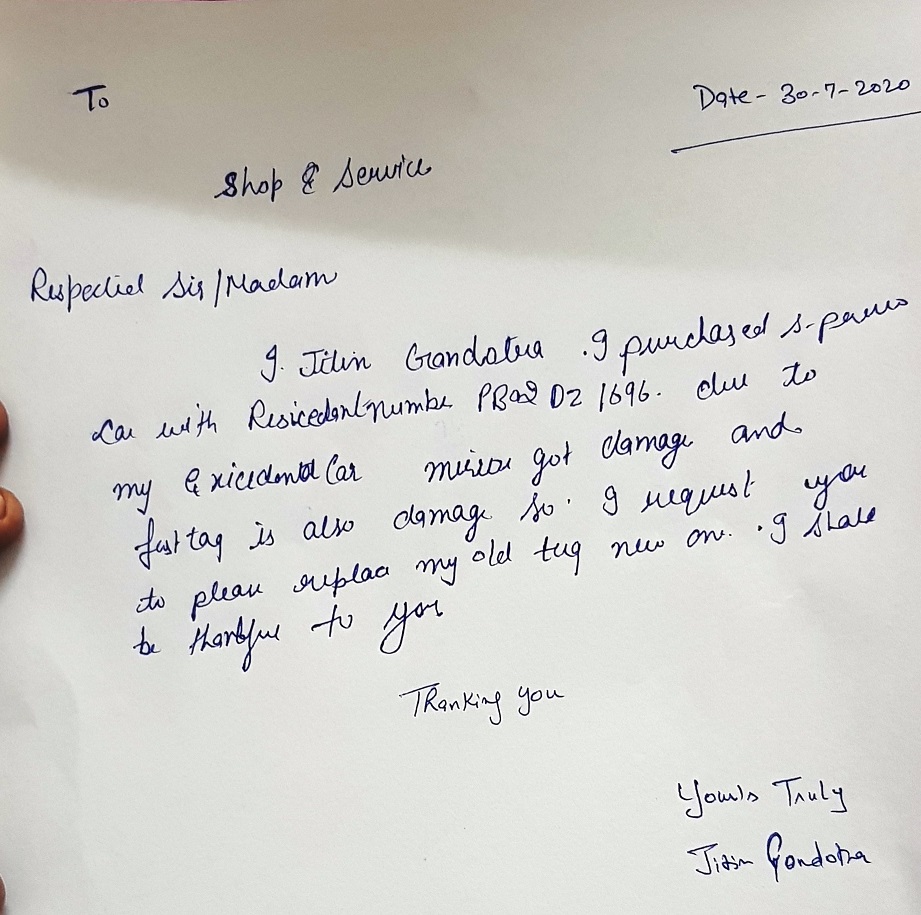 To
Date - 30-7-2020
Shop & Service
Respected Sir/Madam
I. Jitin Gandotra . I purchased s-presso
Car with Resicedent number PB02 DZ 1696. due to
my Exicedental Car mirror got damage and
fast tag is also damage so. I request you
to please replace my old tag new one. . I shall
be thankful to you
Thanking you
Yours Truly
Jitin Gandotra